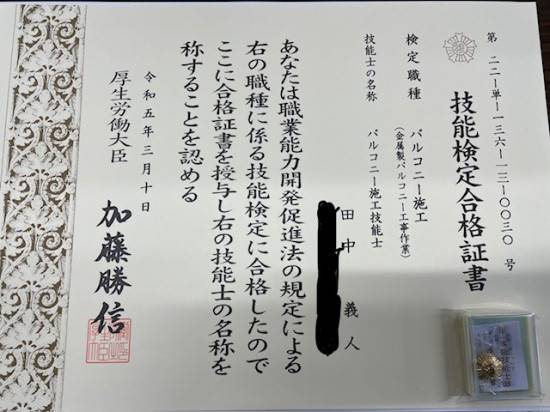 第 二二-単-一三六-一三-〇〇三〇 号
技能検定合格証書
検定職種 バルコニー施工
(金属製バルコニー工事作業)
技能士の名称 バルコニー施工技能士
田中 義人
あなたは職業能力開発促進法の規定による
右の職種に係る技能検定に合格したので
ここに合格証書を授与し右の技能士の名称を
称することを認める
令和五年三月十日
厚生労働大臣 加藤勝信
技能士